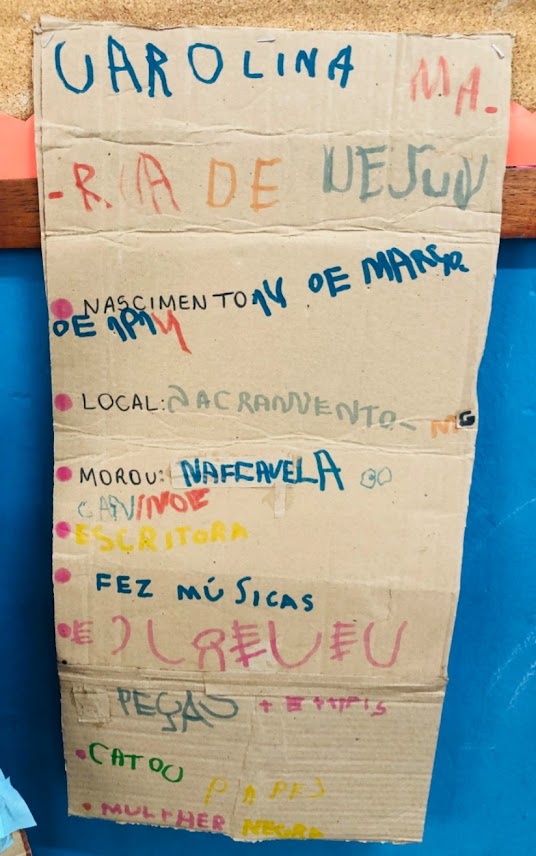 CAROLINA MA-
-RIA DE JESUS
NASCIMENTO 14 DE MARSO
DE 1914
LOCAL: SACRAMENTO_ MG
MOROU: NAFCAVELA DO
CANINDE
ESCRITORA
FEZ MÚSICAS
ESCREVEU
PEÇAS +
CATOU PAPES
MULTHER NEGRA